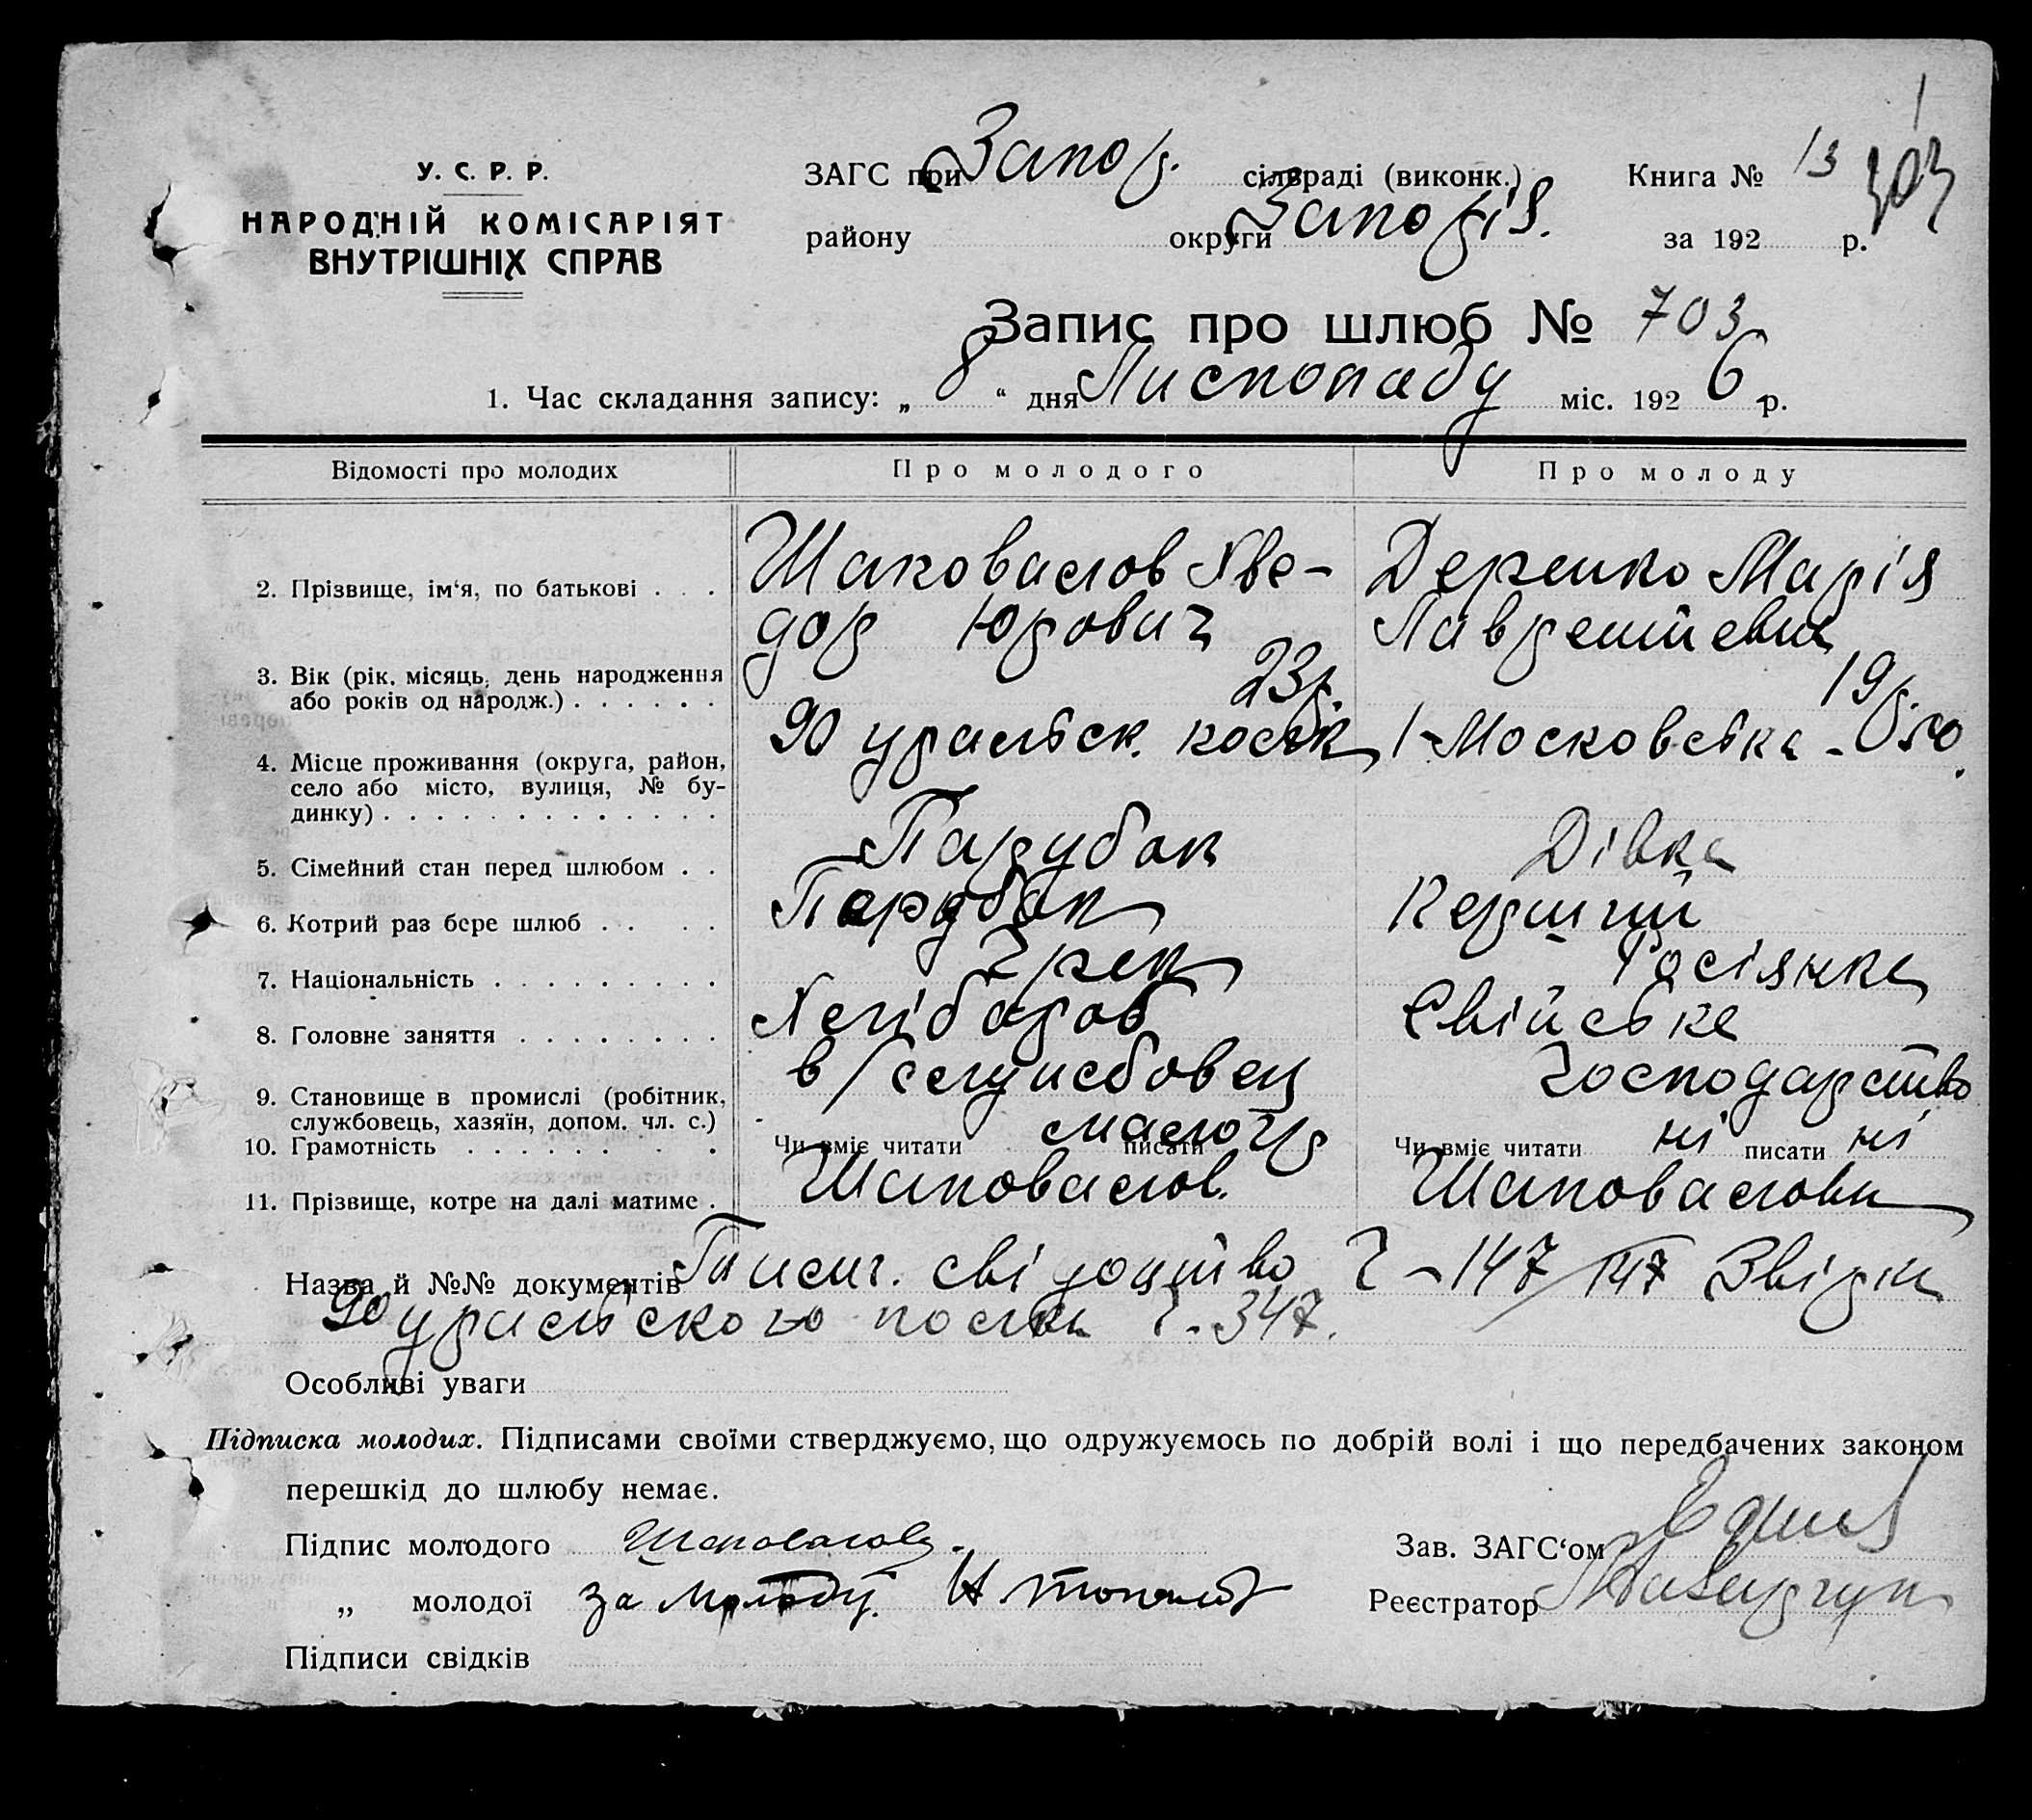 У. С. Р. Р.
НАРОДНІЙ КОМІСАРІЯТ
ВНУТРІШНІХ СПРАВ
ЗАГС при Запор. сілвраді (виконк.)
району округи Запоріз.
Книга № 13
за 192 р.
703
Запис про шлюб № 703
1. Час складання запису: „ 8 “ дня Листопаду міс. 192 6 р.
Відомості про молодих
Про молодого
Про молоду
2. Прізвище, ім‘я, по батькові . . .
Шаповалов Хве-
дор Юрович
Деренко Марія
Лаврентіевна
3. Вік (рік, місяць, день народження
або років од народж.) . . . . . .
23р.
19р.
4. Місце проживання (округа, район,
село або місто, вулиця, № бу-
динку) . . . . . . . . . . . . .
90 уральск.
Московська
5. Сімейний стан перед шлюбом . .
Парубок
Дівка
6. Котрий раз бере шлюб . . . .
Парубок
Перший
7. Національність . . . . . . . . .
Грек
Росіянка
8. Головне заняття . . . . . . . .
Хлібороб
Свійське
9. Становище в промислі (робітник,
службовець, хазяїн, допом. чл. с.)
в/службовец
господарство
10. Грамотність . . . . . . . .
Чи вміє читати писати
Чи вміє читати ні писати ні
11. Прізвище, котре на далі матиме .
Шаповалов.
Шаповалови
Назва й №№ документів свідоцтво Ч - 147
90 уральского полка Ч. 347.
Особливі уваги
Підписка молодих. Підписами своїми стверджуємо, що одружуємось по добрій волі і що передбачених законом
перешкід до шлюбу немає.
Підпис молодого Шаповалов
Зав. ЗАГС‘ом
„ молодої за молоду
Реєстратор
Підписи свідків